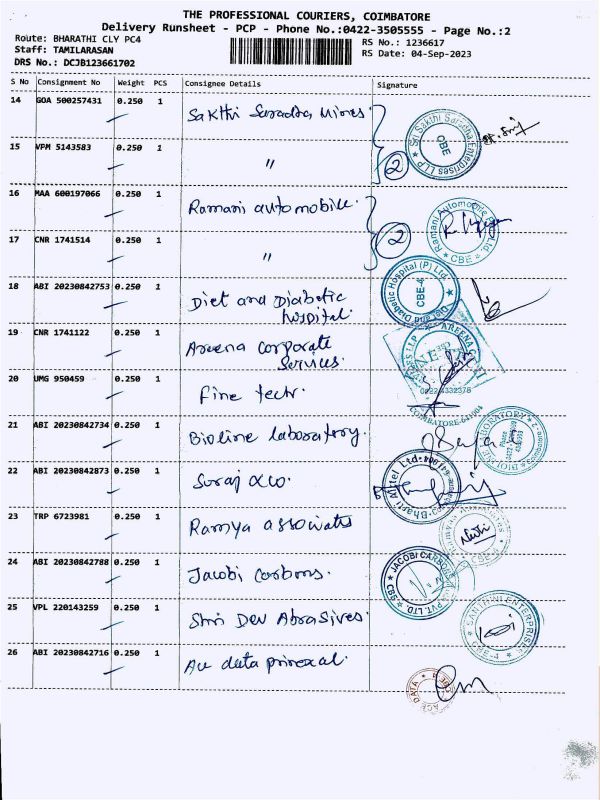 THE PROFESSIONAL COURIERS, COIMBATORE
Delivery Runsheet - PCP - Phone No.:0422-3505555 - Page No.:2
Route: BHARATHI CLY PC4
RS No.: 1236617
Staff: TAMILARASAN
RS Date: 04-Sep-2023
DRS No.: DCJB123661702
S No Consignment No Weight PCS Consignee Details Signature
14 GOA 500257431 0.250 1 Sakthi Saradha Mines
Sri Sakthi Saradha Enterprises LLP CBE
15 VPM 5143583 0.250 1 " 2
16 MAA 600197066 0.250 1 Ramani automobile.
Ramani Automobile Pvt Ltd CBE
17 CNR 1741514 0.250 1 " 2
18 ABI 20230842753 0.250 1 Diet and Diabetic
hospital.
Diet and Diabetic Hospital (P) Ltd. CBE-4
19 CNR 1741122 0.250 1 Areena corporate
Services.
20 UMG 950459 0.250 1 Fine tech.
0422-4332378
COIMBATORE-641004
21 ABI 20230842734 0.250 1 Bioline laboratory.
BIOLINE LABORATORY
22 ABI 20230842873 0.250 1 Suraj
Bharti Airtel Ltd
23 TRP 6723981 0.250 1 Ramya associates
24 ABI 20230842788 0.250 1 Jacobi Carbons.
JACOBI CARBONS PVT. LTD.
25 VPL 220143259 0.250 1 Shri Dev Abrasives.
SANTHINI ENTERPRISES CBE-4
26 ABI 20230842716 0.250 1 data
DATA